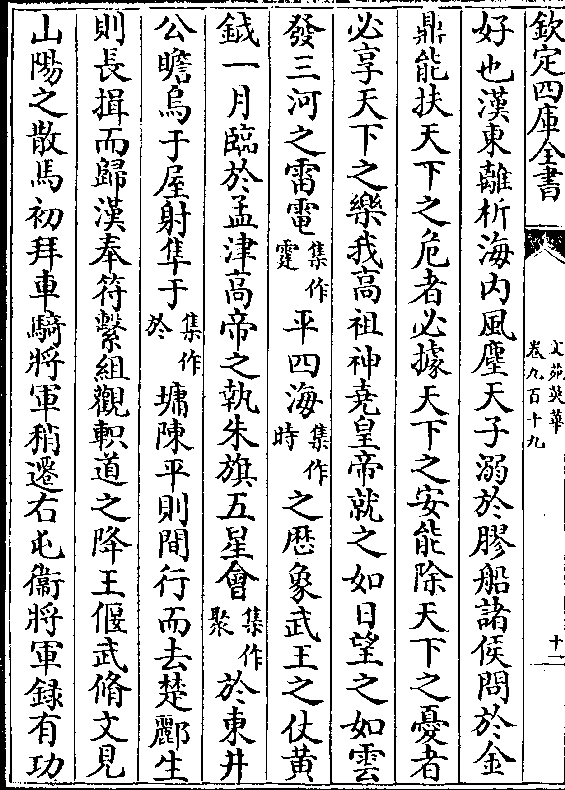 欽定四庫全書
文苑英華
卷九百十九
十一
好也漢東離析海内風塵天子溺於膠船諸侯問於金
鼎能扶天下之危者必據天下之安能除天下之憂者
必享天下之樂我高祖神堯皇帝就之如日望之如雲
發三河之雷電集作霆平四海集作時之歴象武王之仗黄
鉞一月臨於孟津高帝之執朱旗五星會集作聚於東井
公瞻烏于屋射隼于集作於墉陳平則間行而去楚酈生
則長揖而歸漢奉符繫組觀軹道之降王偃武脩文見
山陽之散馬初拜車騎將軍稍遷右屯衞將軍録有功